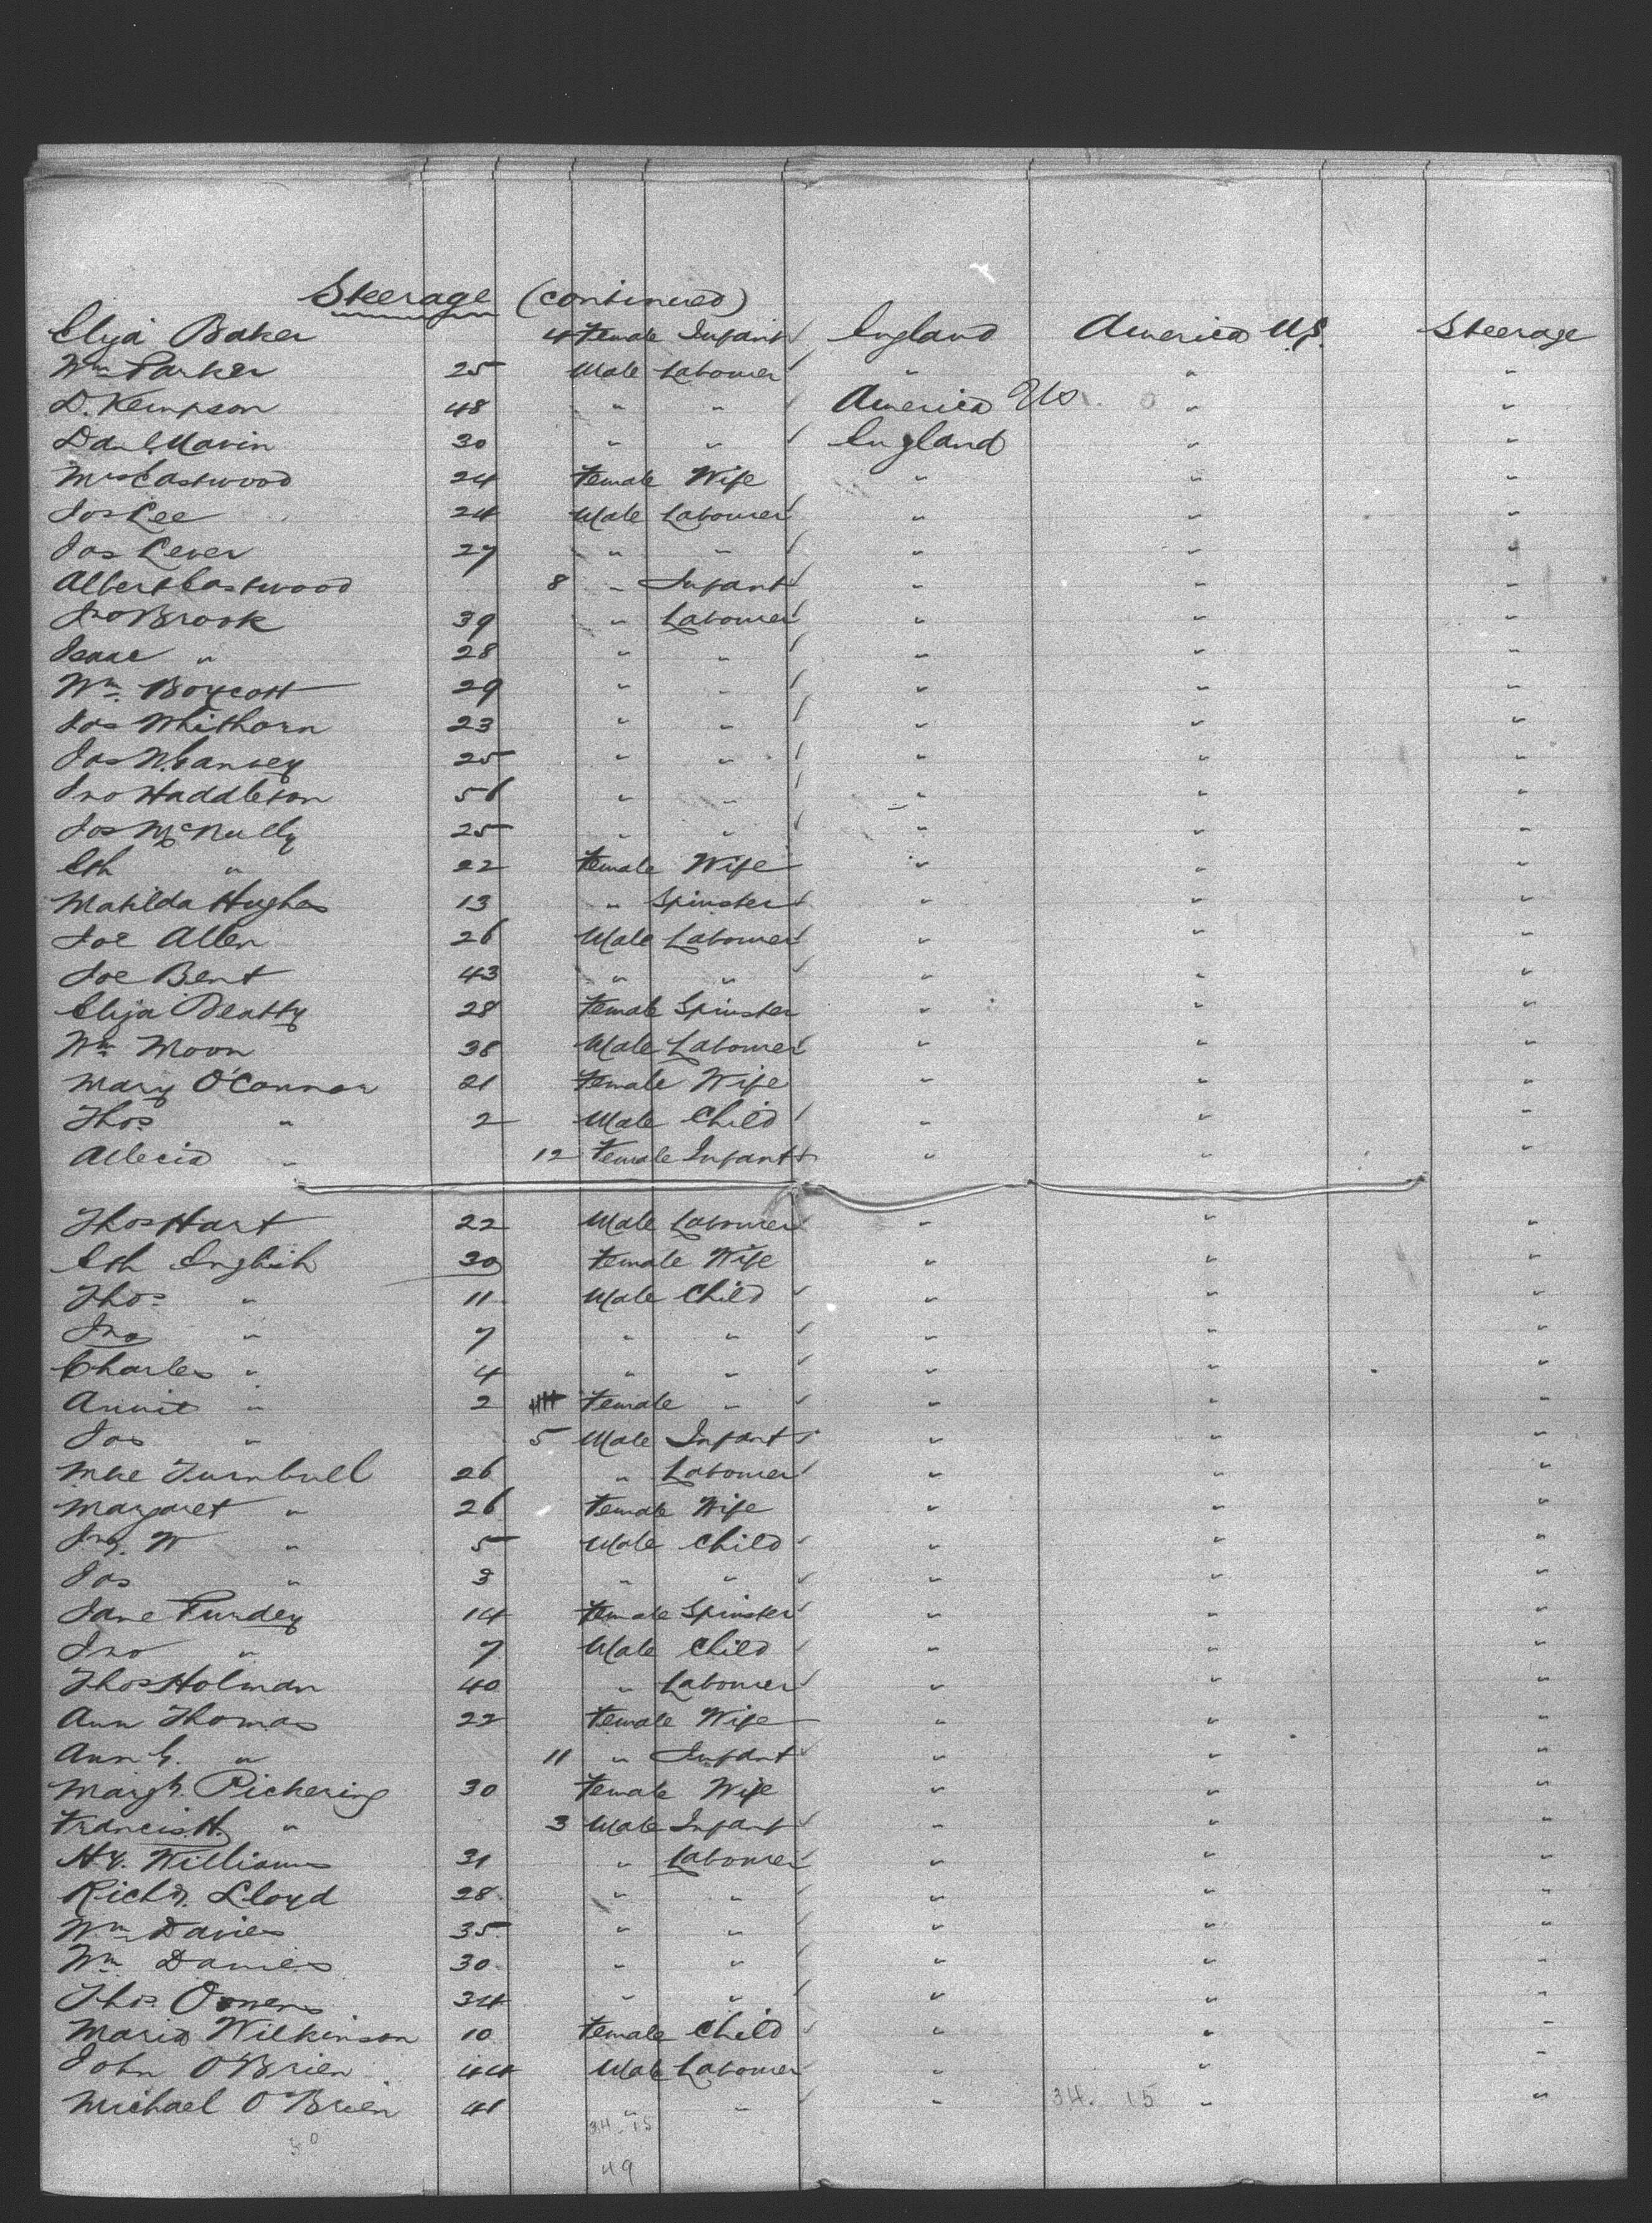 Steerage (continued)
Eliza Baker 4 Female Infant England America U.S. Steerage
Wm Parker 25 Male Labourer " " "
D. Kempson 48 " " America US. " "
Danl Mavin 30 " " England " "
Mrs Eastwood 24 Female Wife " " "
Jos Lee 24 Male Labourer " " "
Jas Lever 27 " " " " "
Albert Eastwood 8 " Infant " " "
Jno Brook 39 " Labourer " " "
Isaac " 28 " " " " "
Wm. Boycott 29 " " " " "
Jos Whithorn 23 " " " " "
Jas 25 " " " " "
Jno Haddleton 56 " " " " "
Jos McNully 25 " " " " "
Eth " 22 Female Wife " " "
Matilda Hughes 13 " Spinster " " "
Joe Allen 26 Male Labourer " " "
Joe Bent 43 " " " " "
Eliza Beatty 28 Female Spinster " " "
Wm Moon 38 Male Labourer " " "
Mary O'Connor 21 Female Wife " " "
Thos " 2 Male Child " " "
Allecia " 12 Female Infant " " "
Thos Hart 22 Male Labourer " " "
Eth English 30 Female Wife " " "
Thos " 11 Male Child " " "
Jno " 7 " " " " "
Charles " 4 " " " " "
Annie " 2 Female " " " "
Jas " 5 Male Infant " " "
Turnbull 26 " Labourer " " "
Margaret " 26 Female Wife " " "
Jno. W " 5 Male Child " " "
Jas " 3 " " " " "
Jane Purdey 14 Female Spinster " " "
Jno " 7 Male Child " " "
Thos Holman 40 " Labourer " " "
Ann Thomas 22 Female Wife " " "
Ann G. " 11 " Infant " " "
Margt. Pickering 30 Female Wife " " "
Francis H. " 3 Male Infant " " "
Hy. Williams 31 " Labourer " " "
Richd. Lloyd 28 " " " " "
Wm Davies 35 " " " " "
Wm Davies 30 " " " " "
Thos. Owens 34 " " " " "
Maria Wilkinson 10 Female Child " " "
John O'Brien 44 Male Labourer " " "
Michael O'Brien 41 " " " 34. 15 " "
34. 15
49